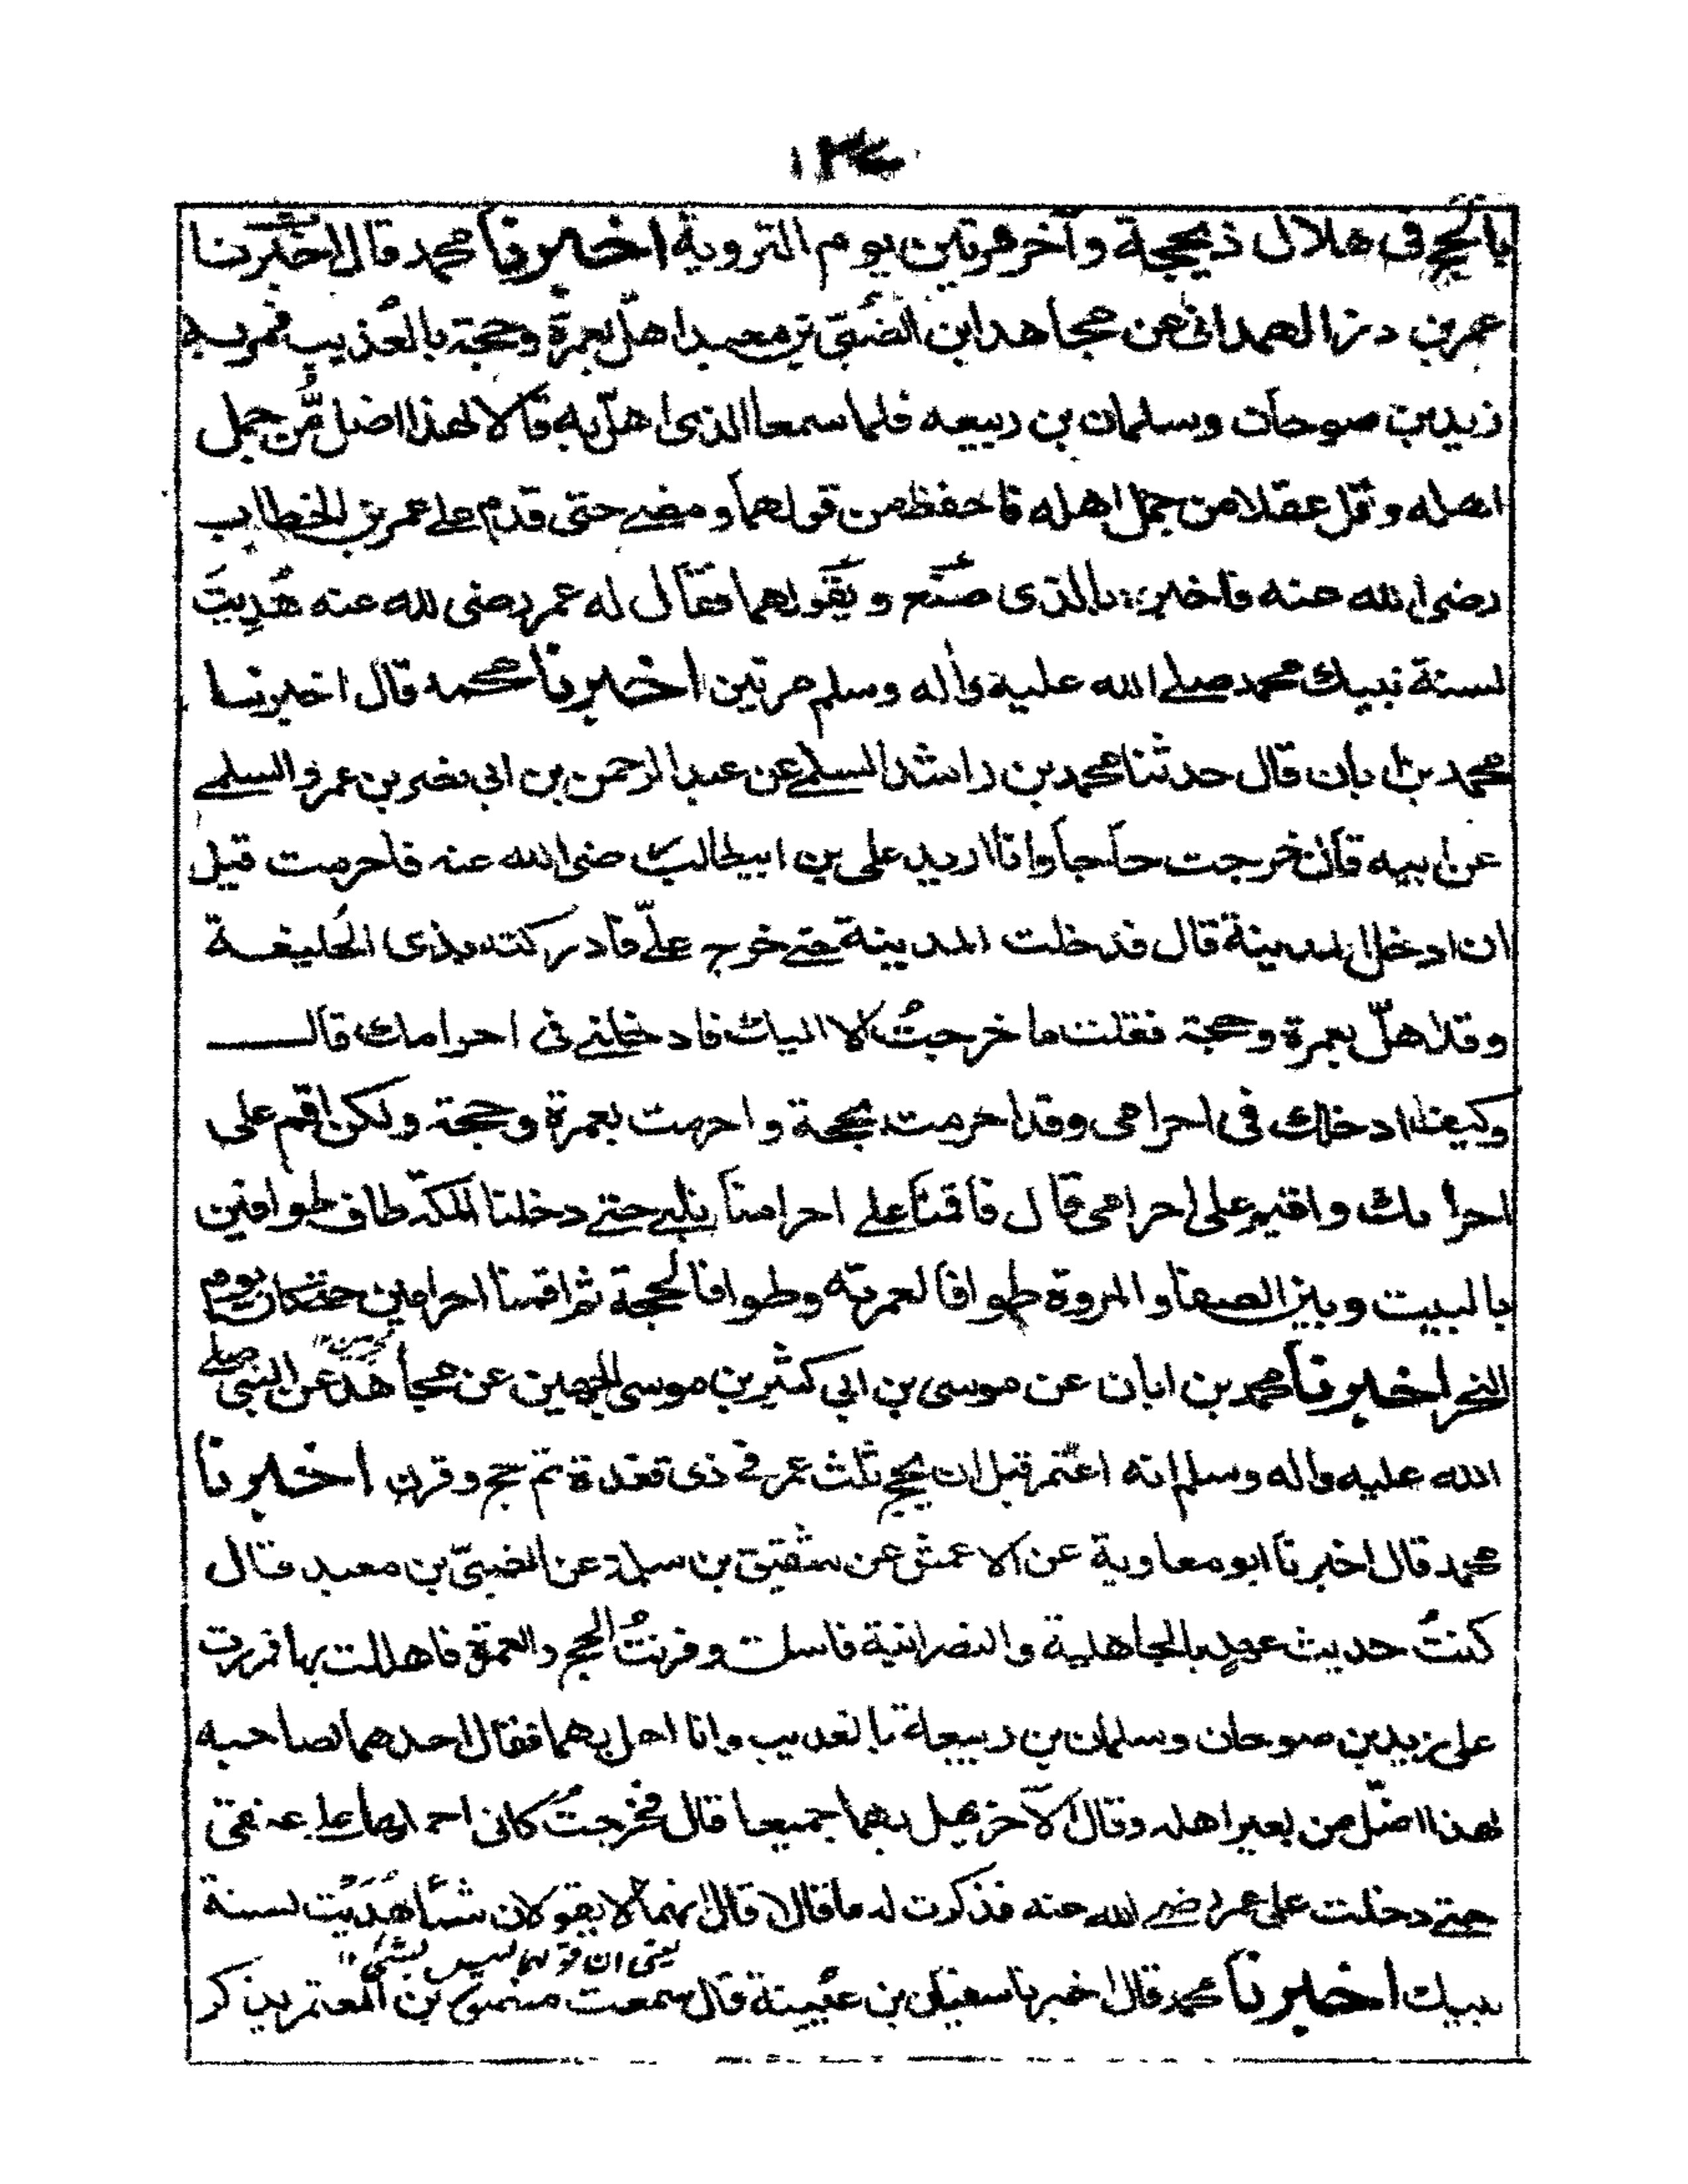 ۱۳۷
بالحج فى هلال ذيحجة وآخر مرتين يوم التروية اخبرنا محمد قال اخبرنا
عمر بن ذر الهمدانى عن مجاهد ان الضبى بن معبد اهل بعمرة وحجة بالعذيب فمر به
زيد بن صوحان وسلمان بن ربيعه فلما سمعا الذى اهل به قالا لهذا اضل من جمل
اهله وقل عقلا من جمل اهله فاحفظ من قولهما ومضى حتى قدم على عمر بن الخطاب
رضى الله عنه فاخبره بالذى صنع وبقولهما فقال له عمر رضى الله عنه هُدِيتَ
لسنة نبيك محمد صلى الله عليه واله وسلم مرتين اخبرنا محمد قال اخبرنا
محمد بن ابان قال حدثنا محمد بن راشد السلمى عن عبد الرحمن بن ابى نضر بن عمرو السلمى
عن ابيه قال خرجت حاجا وانا اريد على بن ابيطالب رضى الله عنه فاحرمت قبل
ان ادخل المدينة قال فدخلت المدينة حتى خرج علىّ فادركته بذى الحليفة
وقد اهلّ بعمرة وحجة فقلت ما خرجتُ الا اليك فادخلنى فى احرامك قال
وكيف ادخلك فى احرامى وقد احرمت بحجة واحرمت بعمرة وحجة ولكن اقم على
احرامك واقيم على احرامى قال فاقمنا على احرامنا نلبى حتى دخلنا المكة طاف طوافين
بالبيت وبين الصفا والمروة طوافا لعمرته وطوافا لحجة ثم اقمنا احرامين حتى كان يوم
النحر اخبرنا محمد بن ابان عن موسى بن ابى كثير بن موسى الجهين عن مجاهد عن النبى صلى
الله عليه واله وسلم انه اعتمر قبل ان يحج ثلث عمر فى ذى قعدة ثم حج وقرن اخبرنا
محمد قال اخبرنا ابو معاوية عن الاعمش عن شقيق بن سلمة عن الضبىّ بن معبد قال
كنتُ حديث عهدٍ بالجاهلية والنصرانية فاسلمت وقرنتُ الحج والعمرة فاهللت بها فمررت
على زيد بن صوحان وسلمان بن ربيعة بالعذيب وانا اهل بهما فقال احدهما لصاحبه
لهذا اضلّ من بعير اهله وقال الآخر يهل بهما جميعا قال فخرجتُ كانى احملهما على عنقى
حتى دخلت على عمر رضى الله عنه فذكرت له ما قالا قال انهما لا يقولان شئا هُدِيْتَ لسنة
يعنى ان قولهما ليس بشئ ۱۲
نبيك اخبرنا محمد قال اخبرنا سفين بن عيينة قال سمعت منصور بن المعتمر يذكر